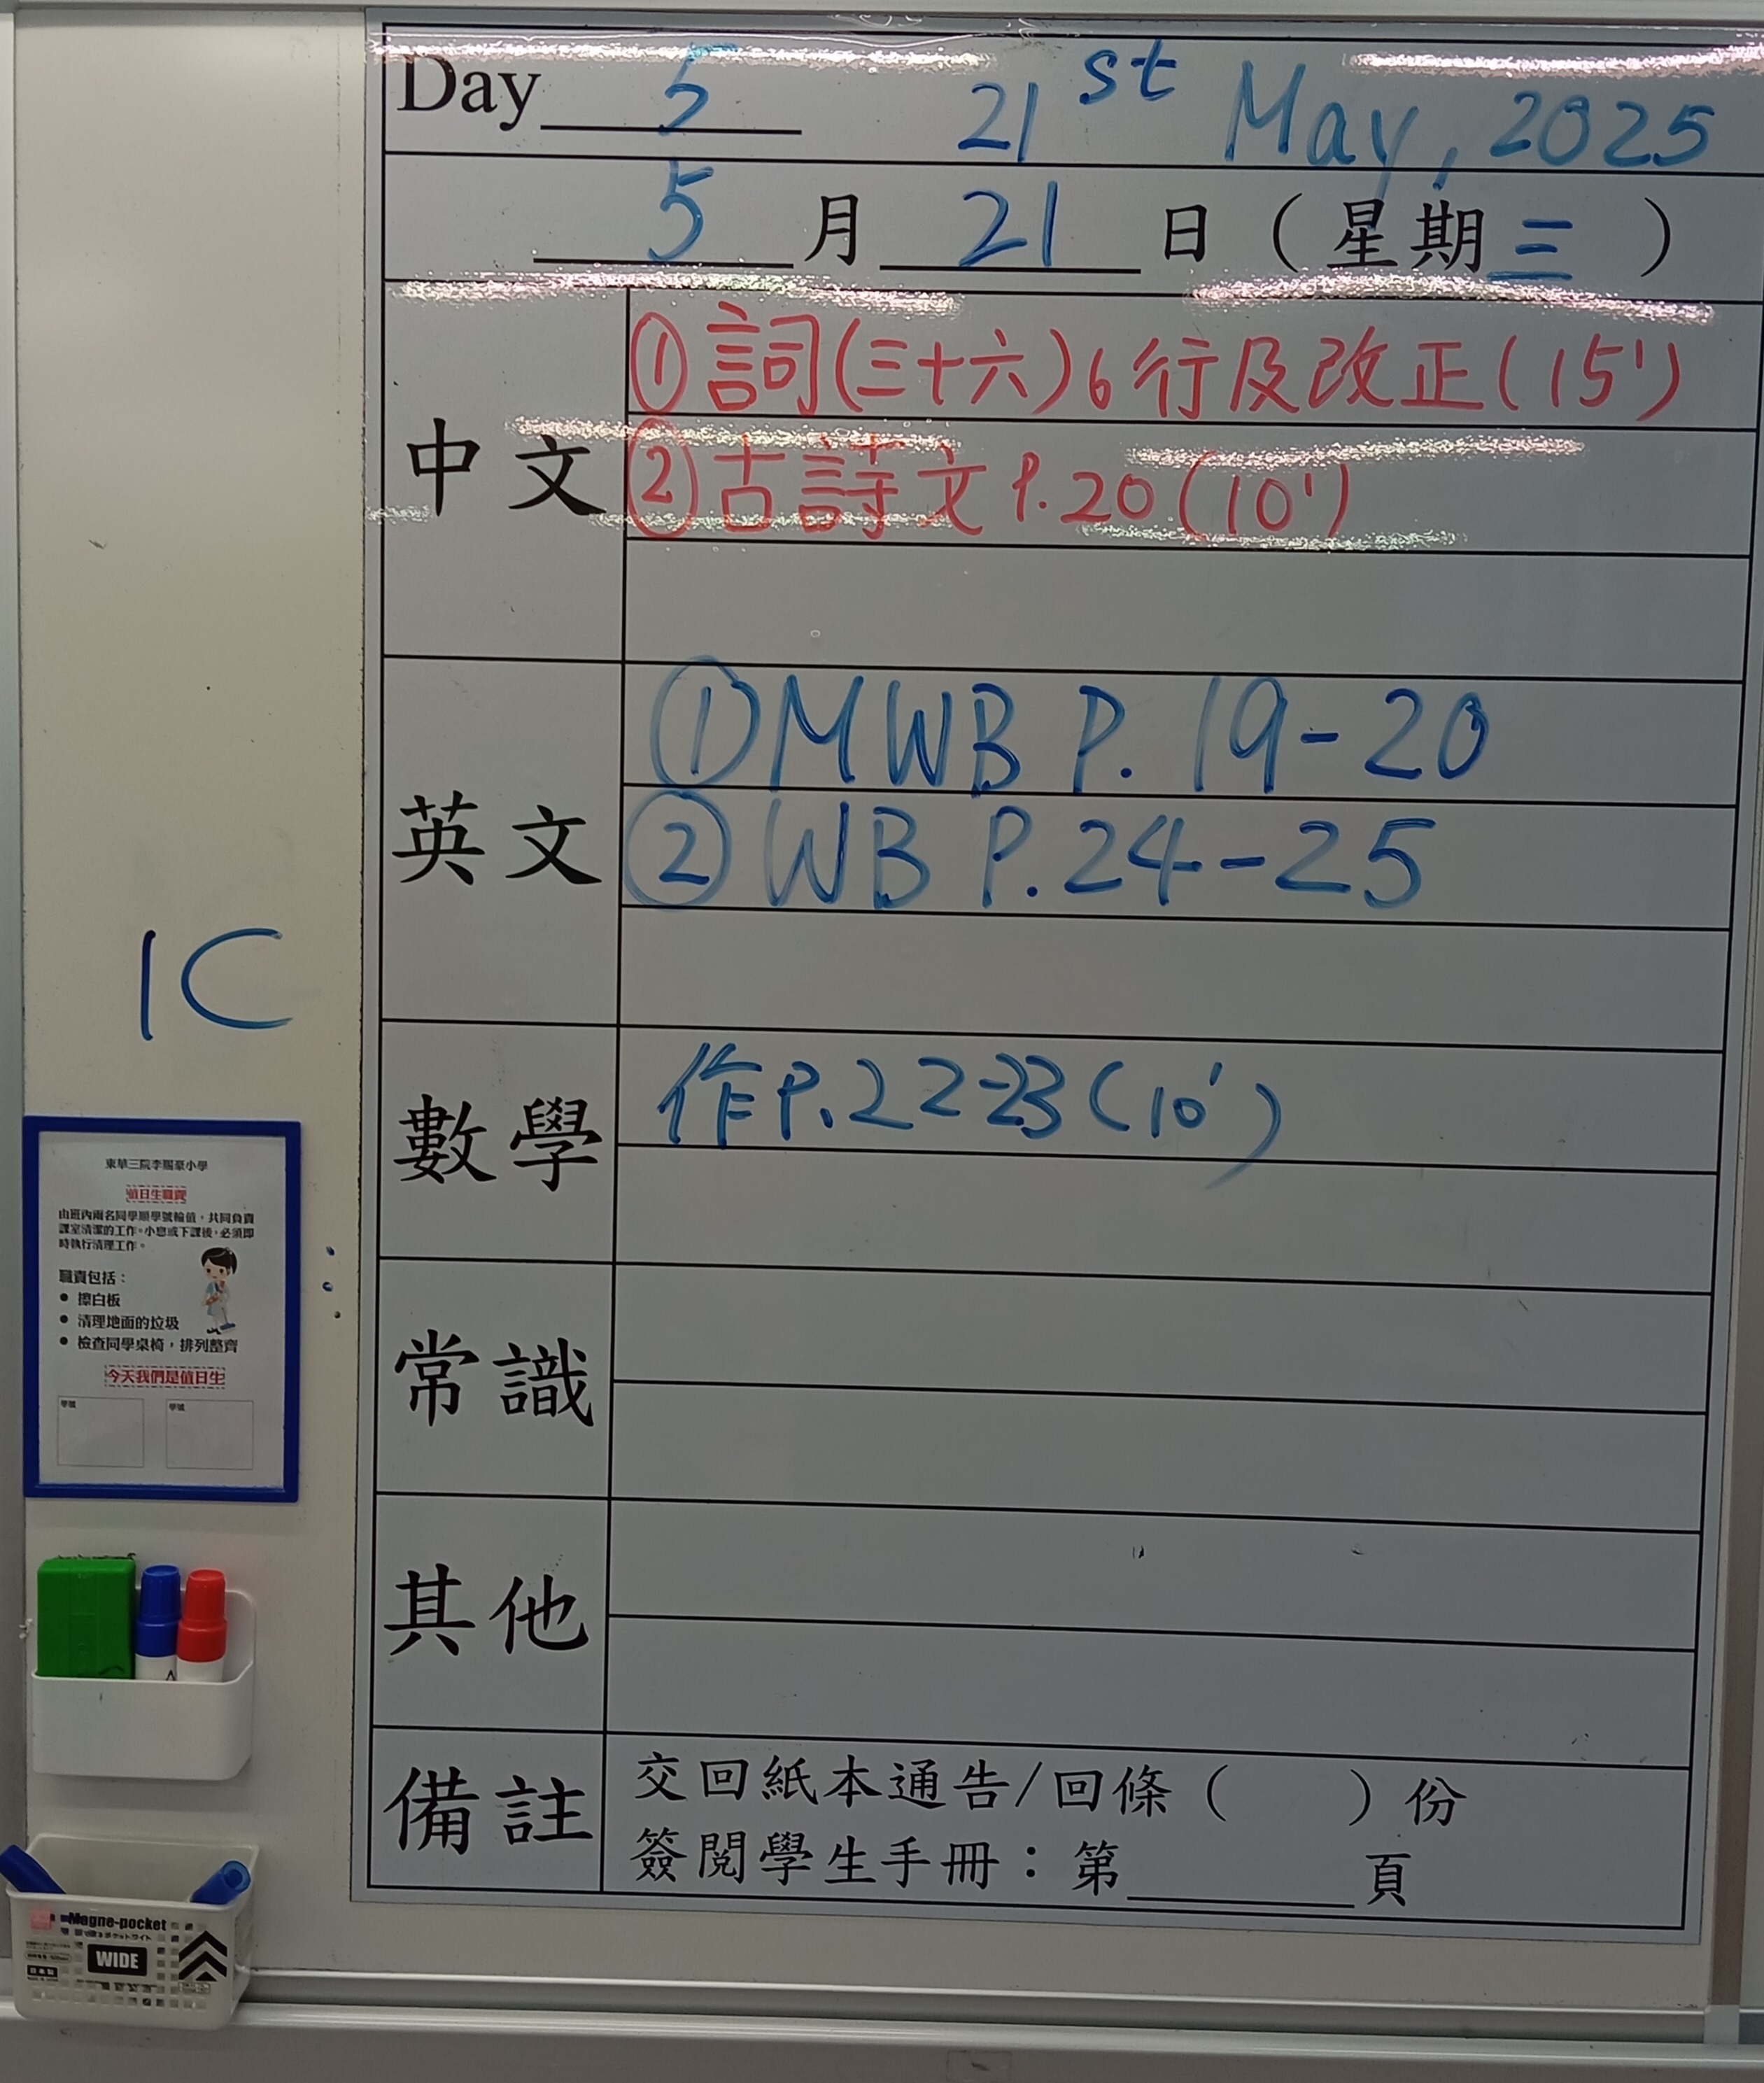 Day 5 21st May, 2025
5 月 21 日 ( 星期三 )
中文
① 詞(三十六) 6 行及改正 (15')
② 古詩文 P.20 (10')
英文
① MWB P. 19-20
② WB P. 24-25
數學
作 P.22-23 (10')
常識
其他
備註
交回紙本通告/回條 ( ) 份
簽閱學生手冊：第______頁
1C
東華三院李賜豪小學
值日生職責
由班內兩名同學順學號輪值，共同負責
課室清潔的工作。小息或下課後，必須即
時執行清理工作。
職責包括：
● 擦白板
● 清理地面的垃圾
● 檢查同學桌椅，排列整齊
今天我們是值日生
學號 學號
Magne-pocket
WIDE
日本製